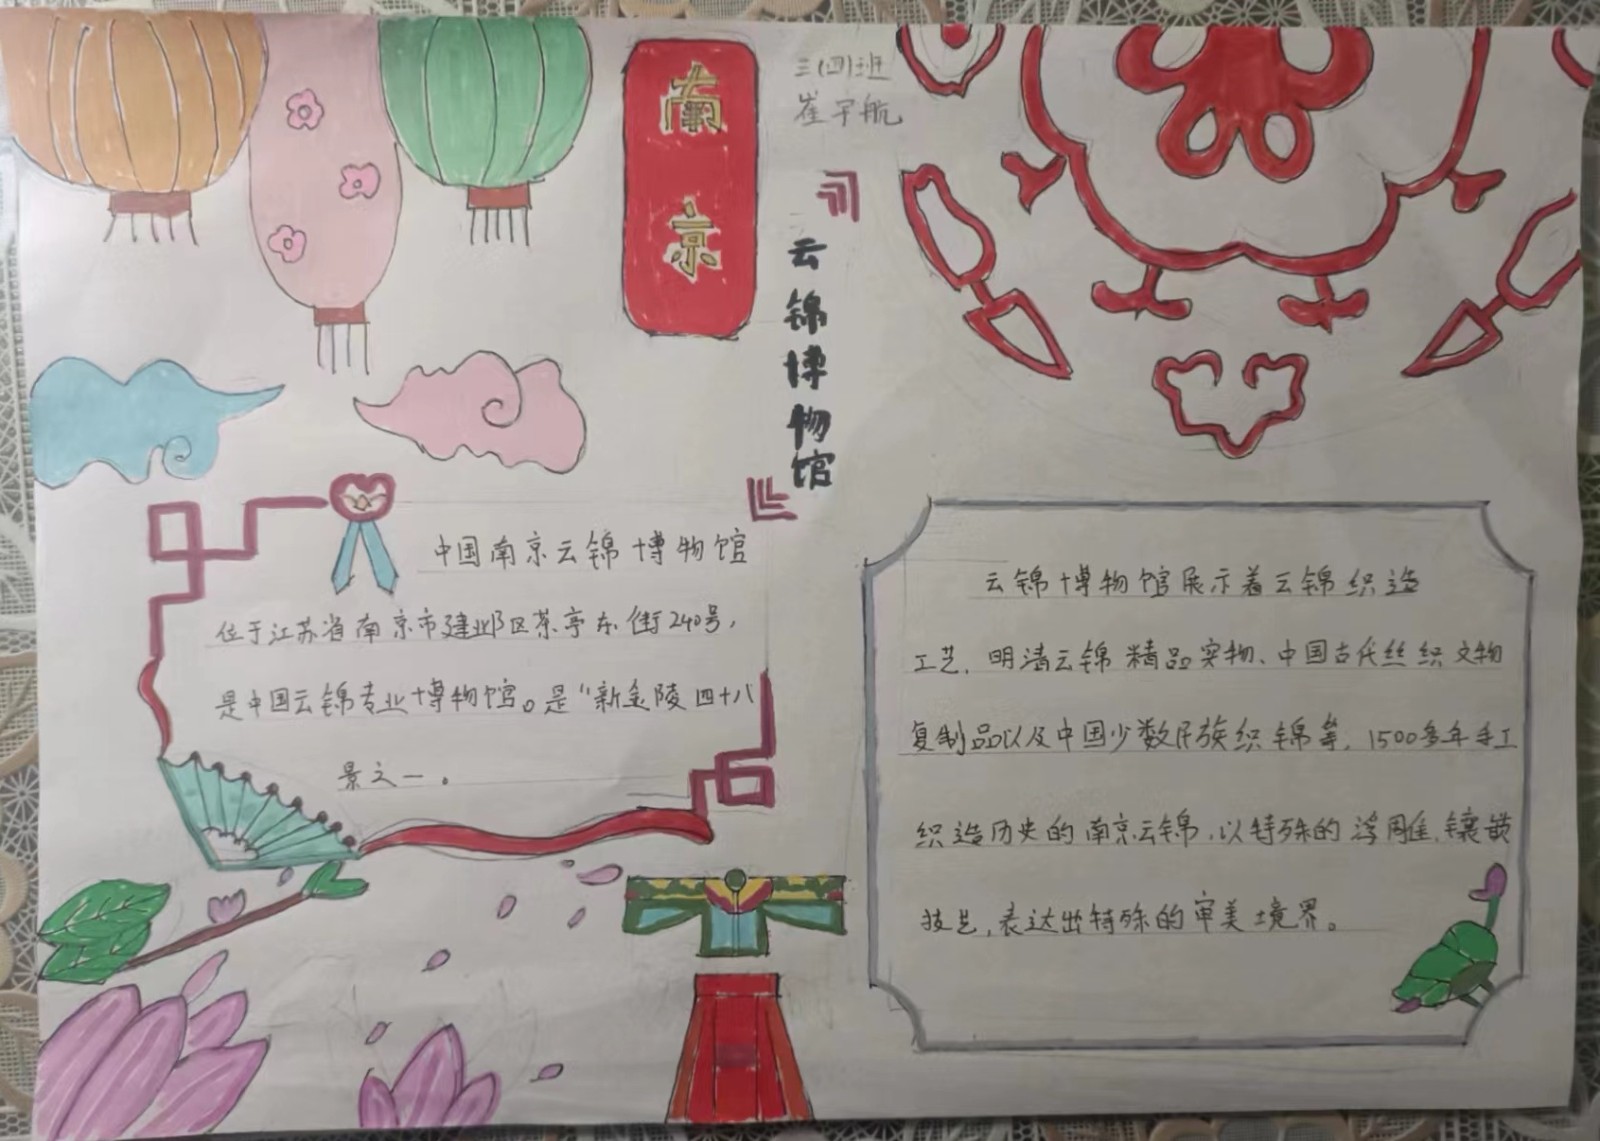 南京
三(四)班
崔宇航
云锦博物馆
中国南京云锦博物馆
位于江苏省南京市建邺区茶亭东街240号，
是中国云锦专业博物馆。是“新金陵四十八
景之一。
云锦博物馆展示着云锦织造
工艺、明清云锦精品实物、中国古代丝织文物
复制品以及中国少数民族织锦等，1500多年手工
织造历史的南京云锦，以特殊的浮雕、镶嵌
技艺，表达出特殊的审美境界。